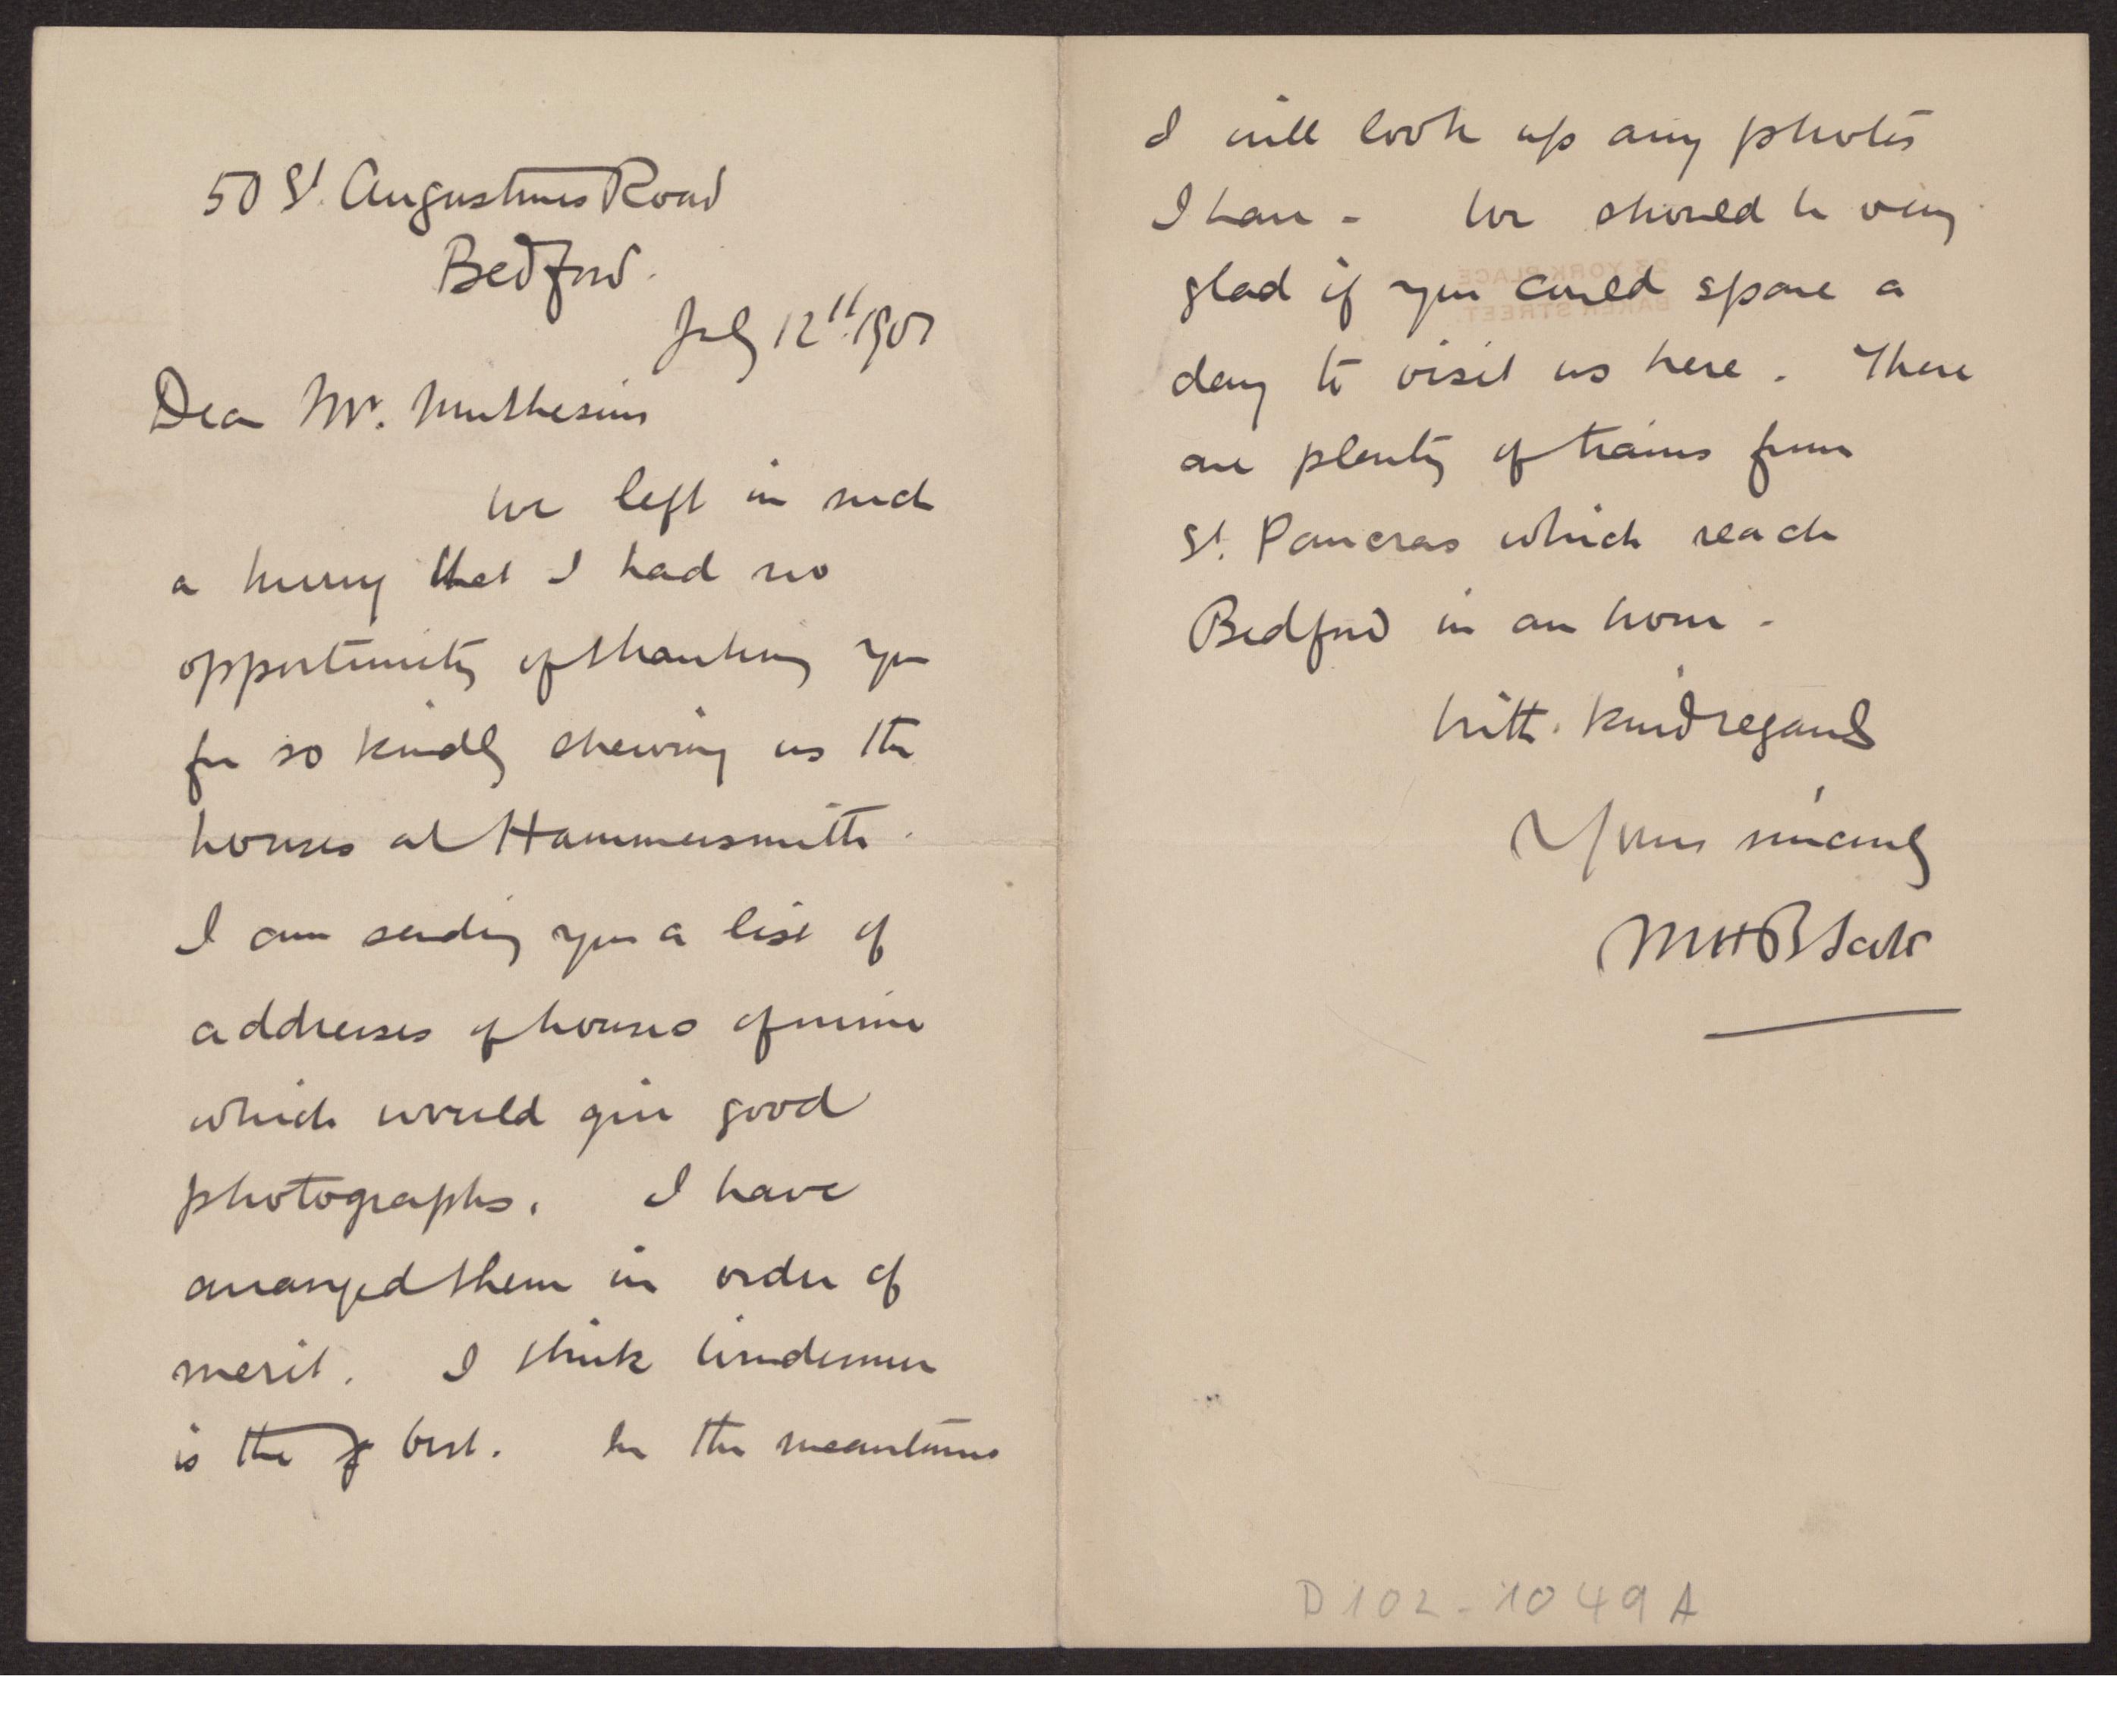 50 St. Augustines Road
Bedford.
July 12th. 1901
Dear Mr. Muthesius
We left in such
a hurry that I had no
opportunity of thanking you
for so kindly shewing us the
houses at Hammersmith.
I am sending you a list of
addresses of houses of mine
which would give good
photographs. I have
arranged them in order of
merit. I think
is the best. In the meantime
I will look up any photos
I have - We should be very
glad if you could spare a
day to visit us here. There
are plenty of trains from
St. Pancras which reach
Bedford in an hour -
With kind regards
Yours sincerely
MHB Scott
YORK PLACE
BAKER STREET.
D 102 - 1049 A